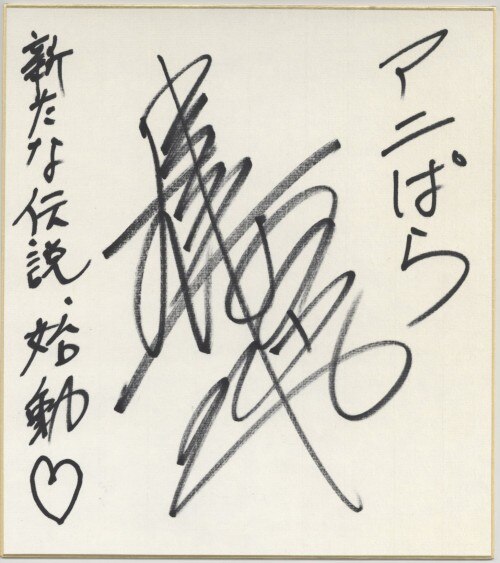 アニぱら
新たな伝説、始動♡